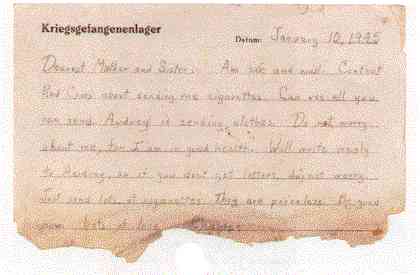 Kriegsgefangenenlager
Datum: January 10, 1945
Dearest Mother and Sister: Am safe and well. Contact
Red Cross about sending me cigarettes. Can use all you
can send. Audrey is sending clothes. Do not worry
about me, for I am in good health. Will write mostly
to Audrey, so if you don't get letters, do not worry.
Just send lots of cigarettes. They are priceless. Be good
mom. Lots of love